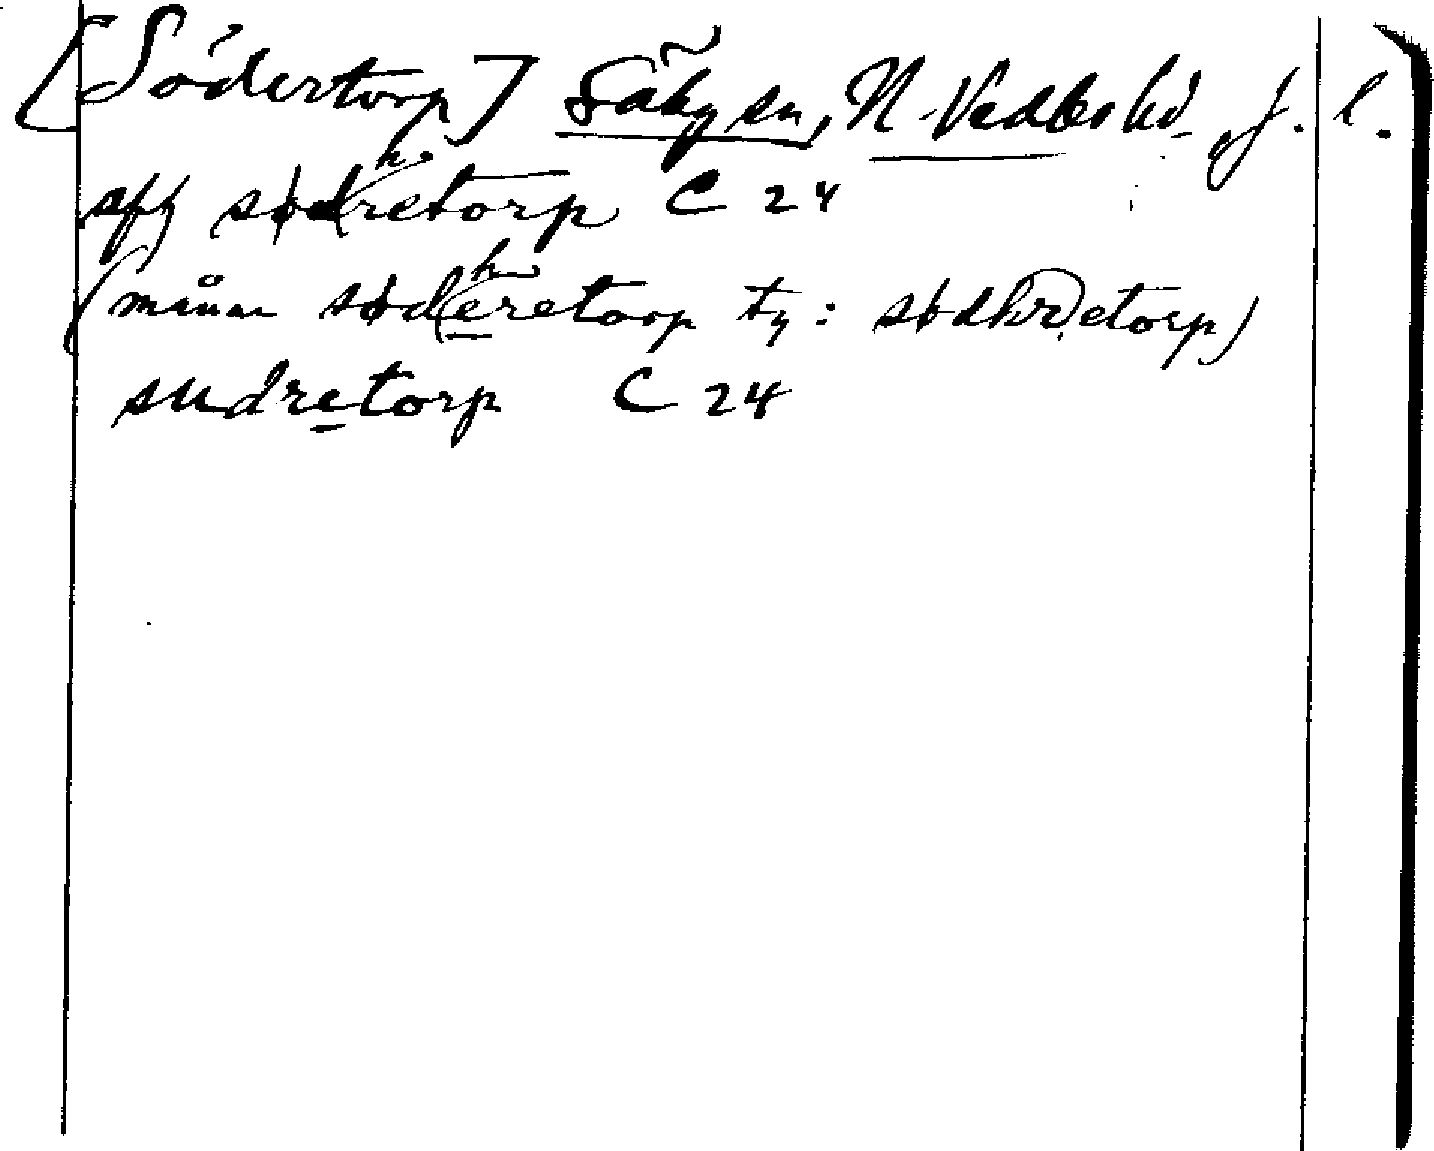 [Södertorp] Säby sn, N. Vedbo hd, j. l.
aff sødhretorp C 24
(månne sødheretorp ty: sødhr)etorp)
sudretorp C 24